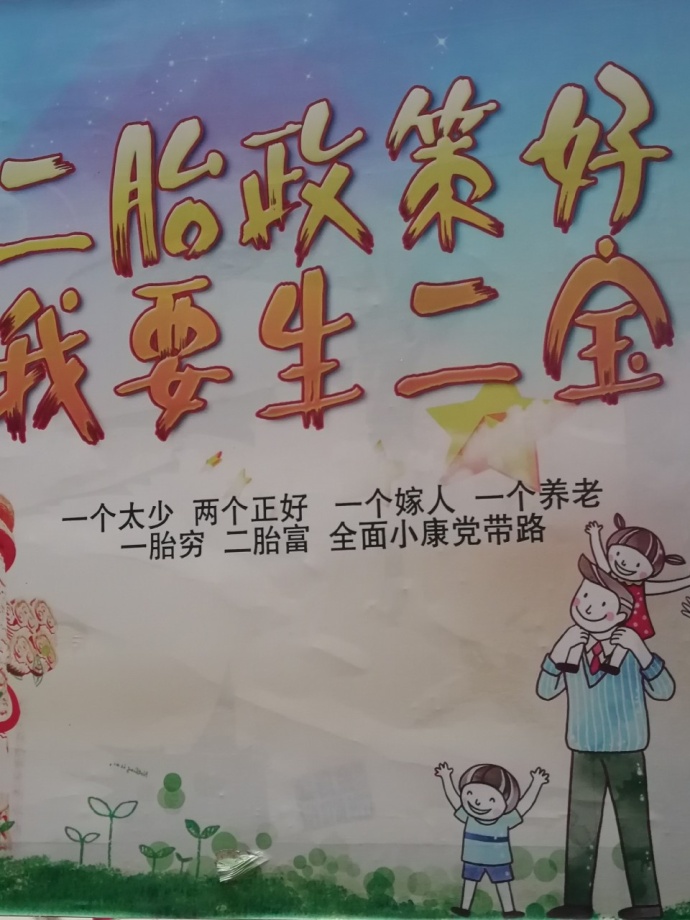 二胎政策好
我要生二宝
一个太少 两个正好 一个嫁人 一个养老
一胎穷 二胎富 全面小康党带路